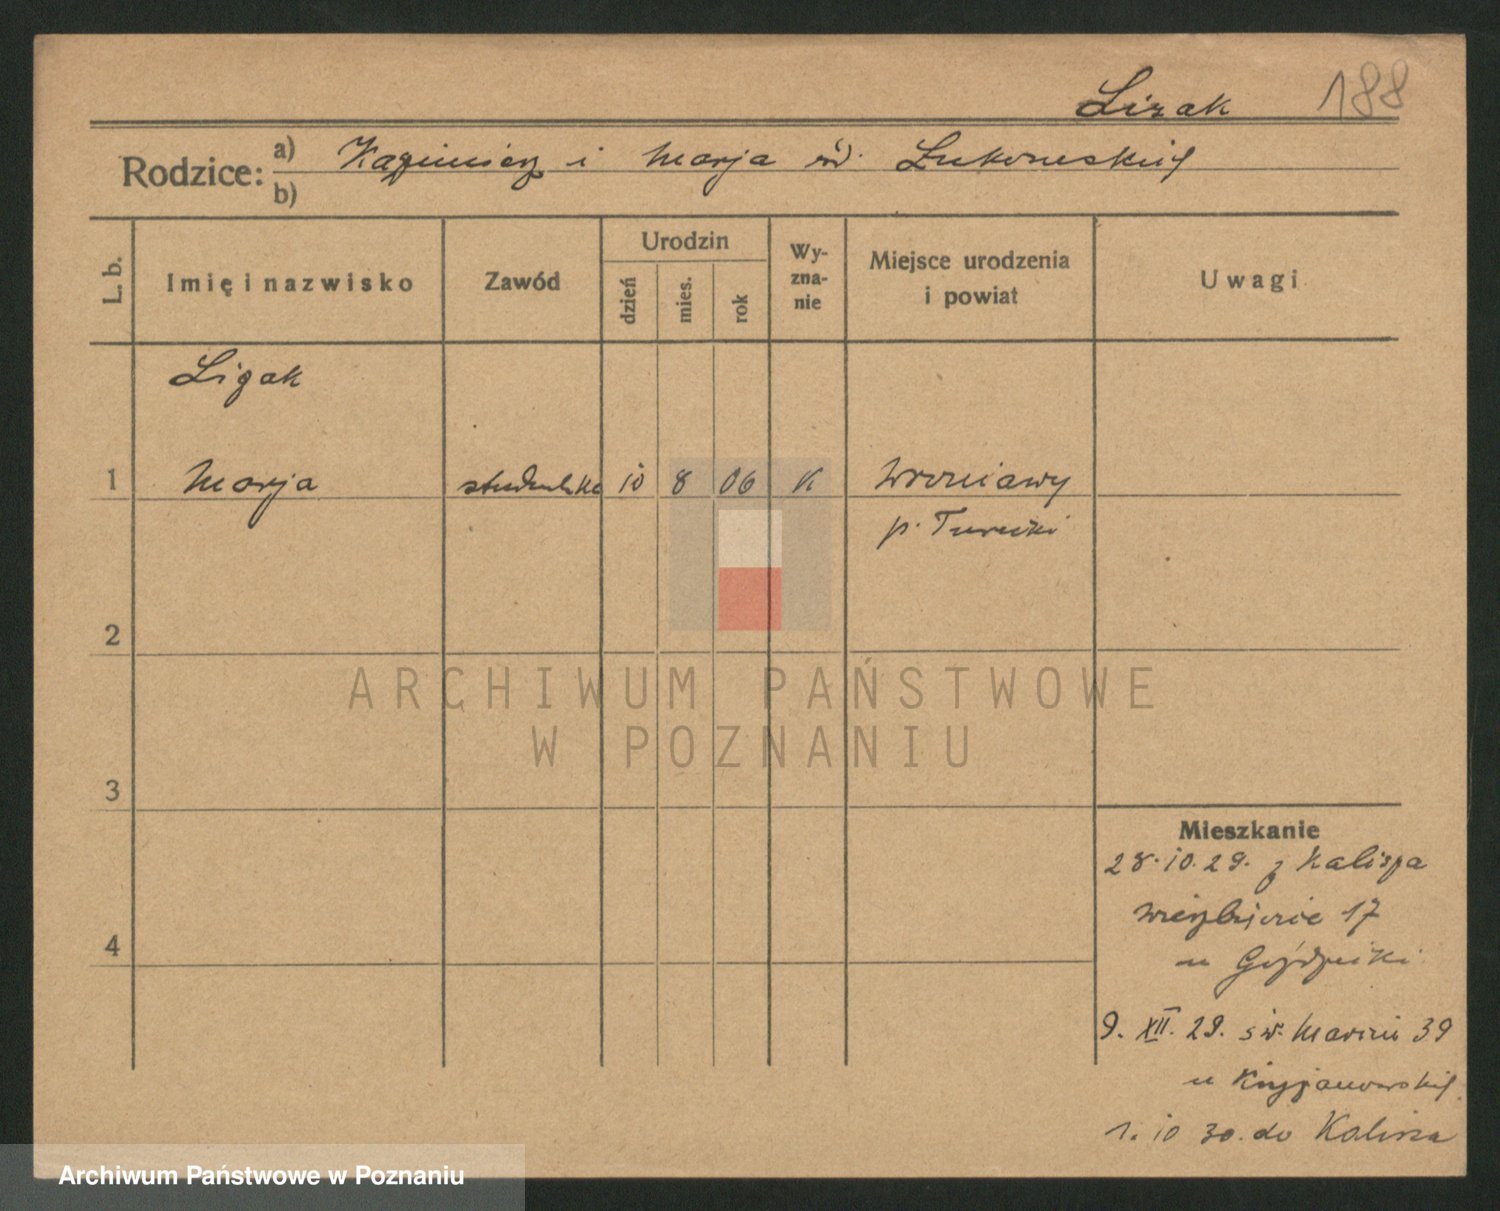 Lizak 188
Rodzice: a) Kazimierz i Marja
b)
L. b.
Imię i nazwisko
Zawód
Urodzin
dzień
mies.
rok
Wy-
zna-
nie
Miejsce urodzenia
i powiat
Uwagi
Lizak
1 Marja studentka 10 8 06 K Wroniawy
p. Turecki
2
3
4
ARCHIWUM PAŃSTWOWE
W POZNANIU
Mieszkanie
28.10.29. z Kalisza
Wierzbięcice 17
u
9. XII. 29. św. Marcin 39
u Krzyżanowskiej
1. 10 30. do Kalisza
Archiwum Państwowe w Poznaniu